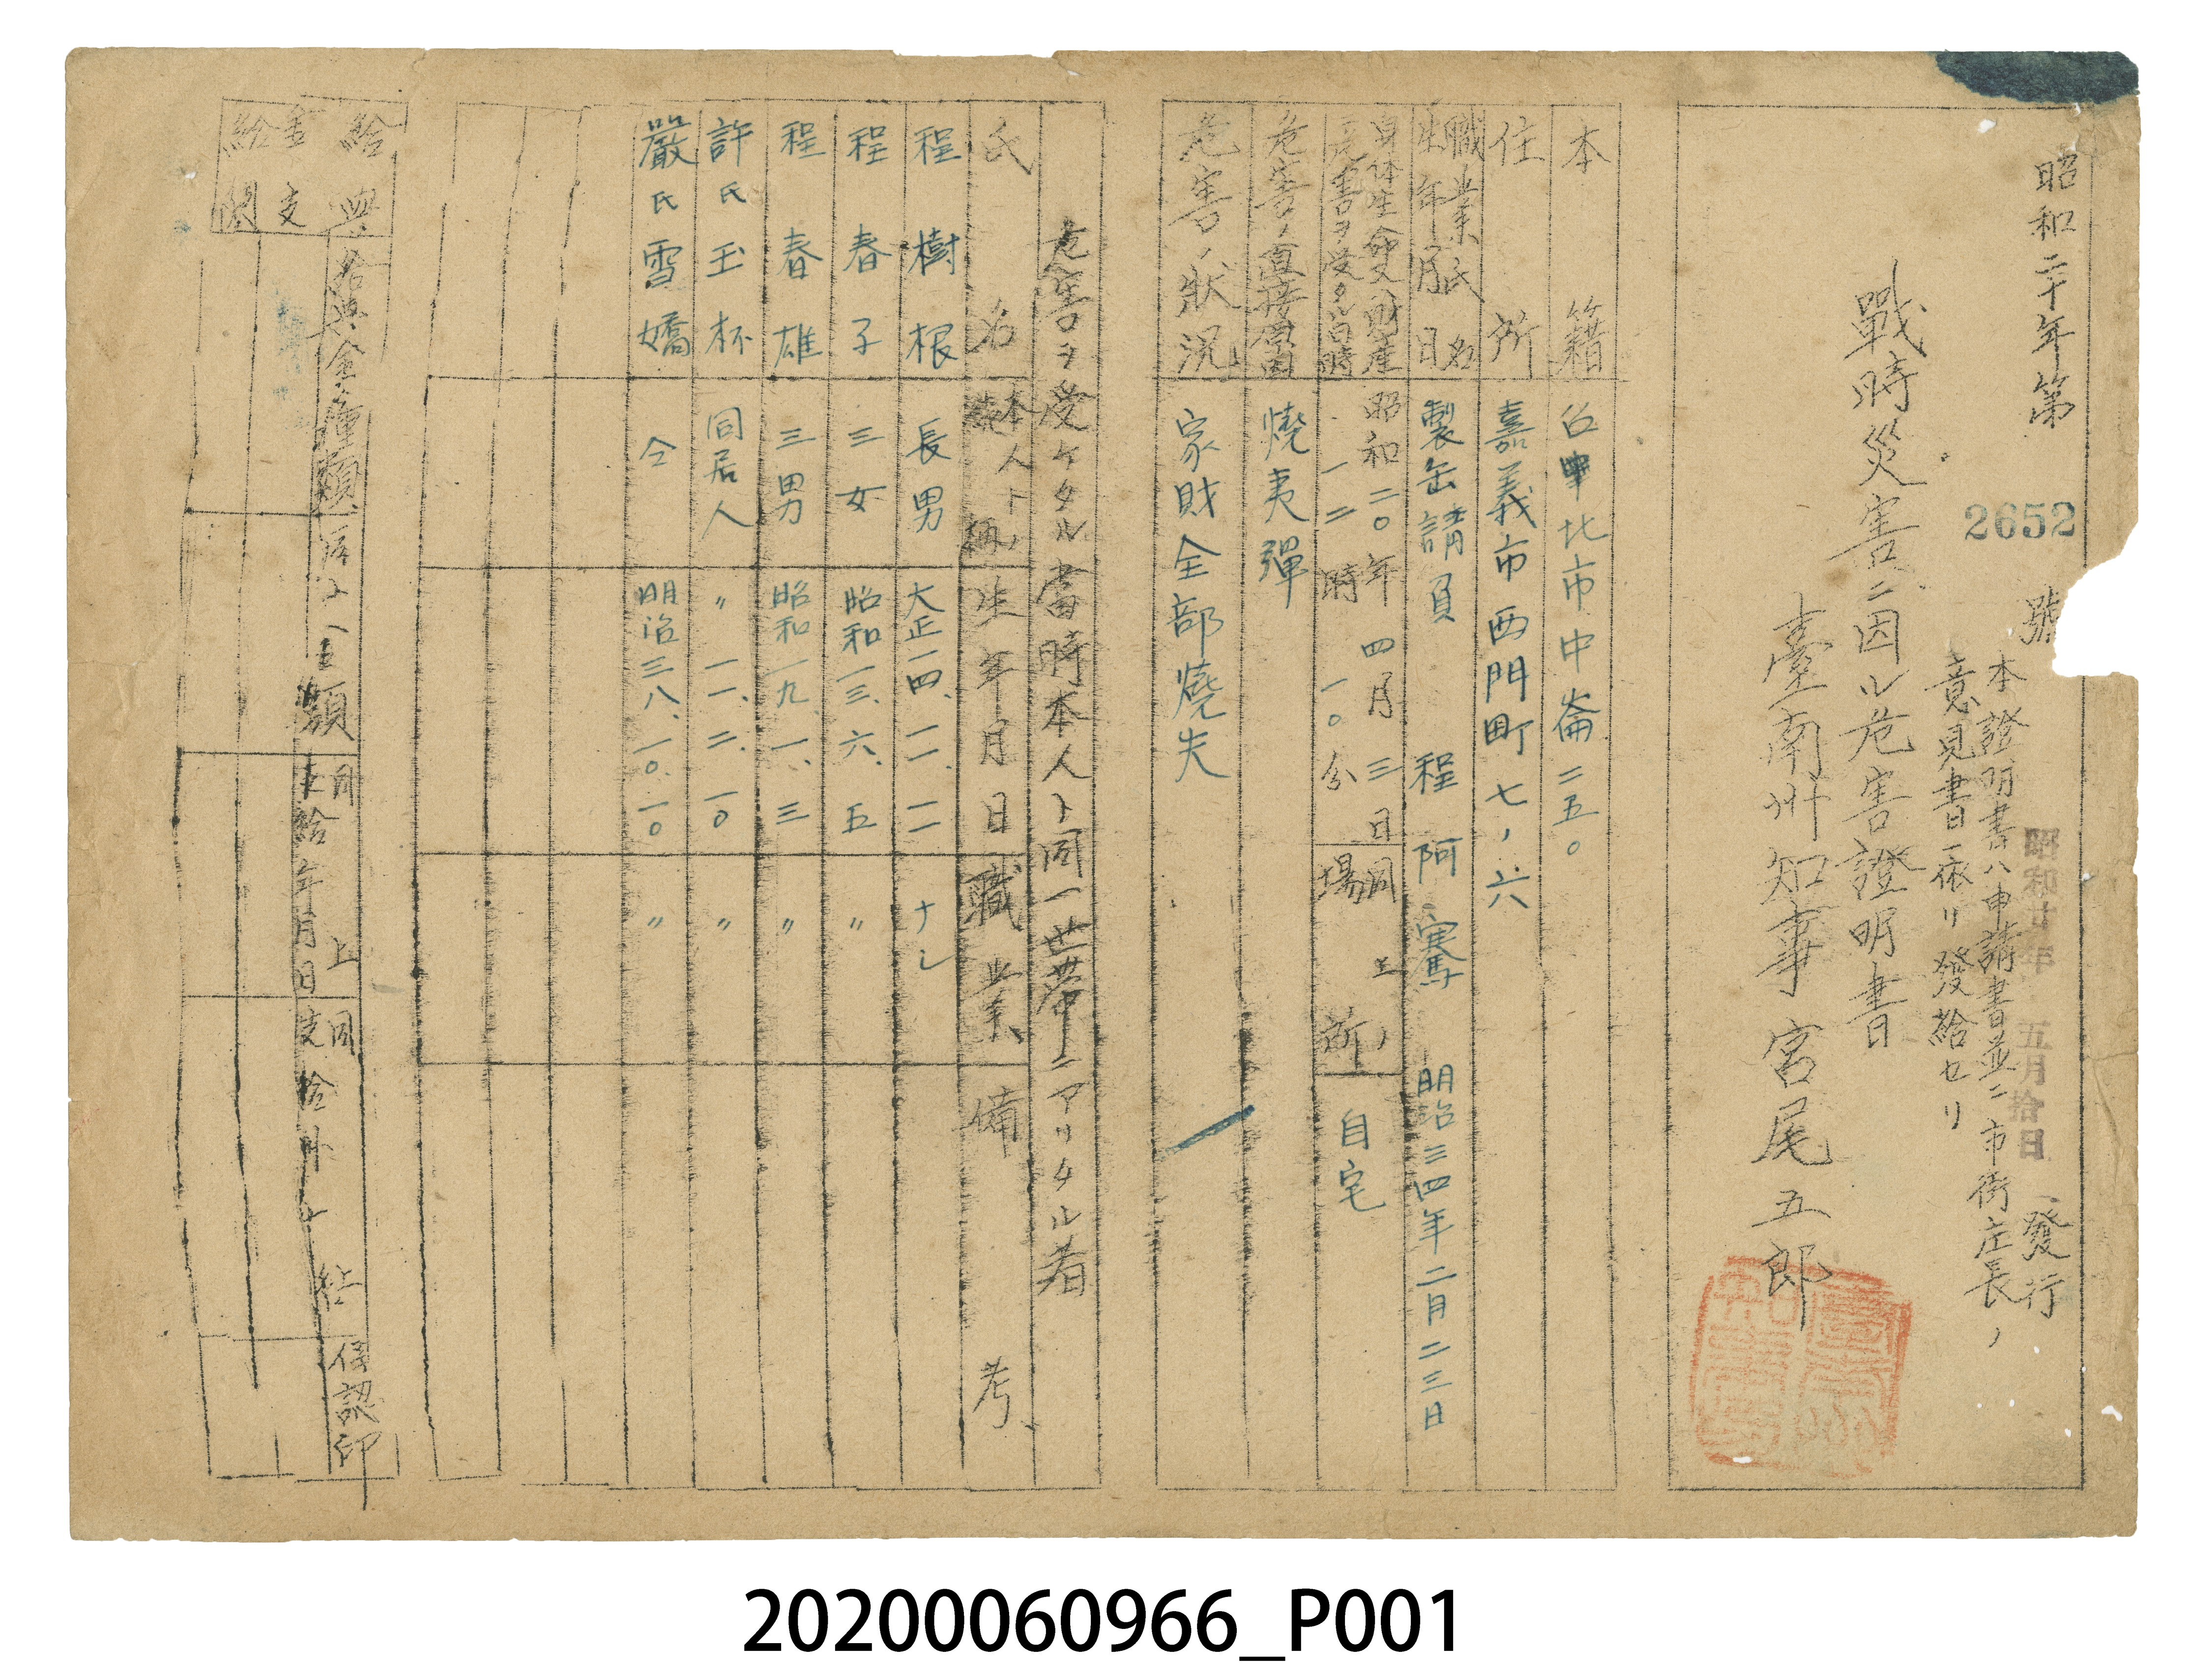 昭和二十年第 2652 號
昭和廿年 五月拾日 發行
本證明書ハ申請書並ニ市街庄長ノ
意見書ニ依リ發給セリ
戰時災害ニ因ル危害證明書
臺南州知事 宮尾五郎
本籍 台北市中崙二五〇
住所 嘉義市西門町七ノ六
職業氏名
生年月日 製缶請負 程阿騫 明治三四年二月二三日
身体生命又ハ財産
危害ヲ受タル當時 昭和二〇年四月三日 一二時一〇分 同上ノ場所 自宅
危害ノ直接原因 燒夷彈
危害ノ狀況 家財全部燒失
危害ヲ受ケタル當時本人ト同一世帶ニアリタル者
氏名 本人トノ續柄 生年月日 職業 備考
程樹根 長男 大正一四、一一、一一 ナシ
程春子 三女 昭和一三、六、五 〃
程春雄 三男 昭和一九、一、三 〃
許氏玉杯 同居人 〃 一一、二、一〇 〃
嚴氏雪嬌 仝 明治三八、一〇、一〇 〃
給與金支給
給與金種類
額
同上支給年月日
同上支給
認印
20200060966_P001